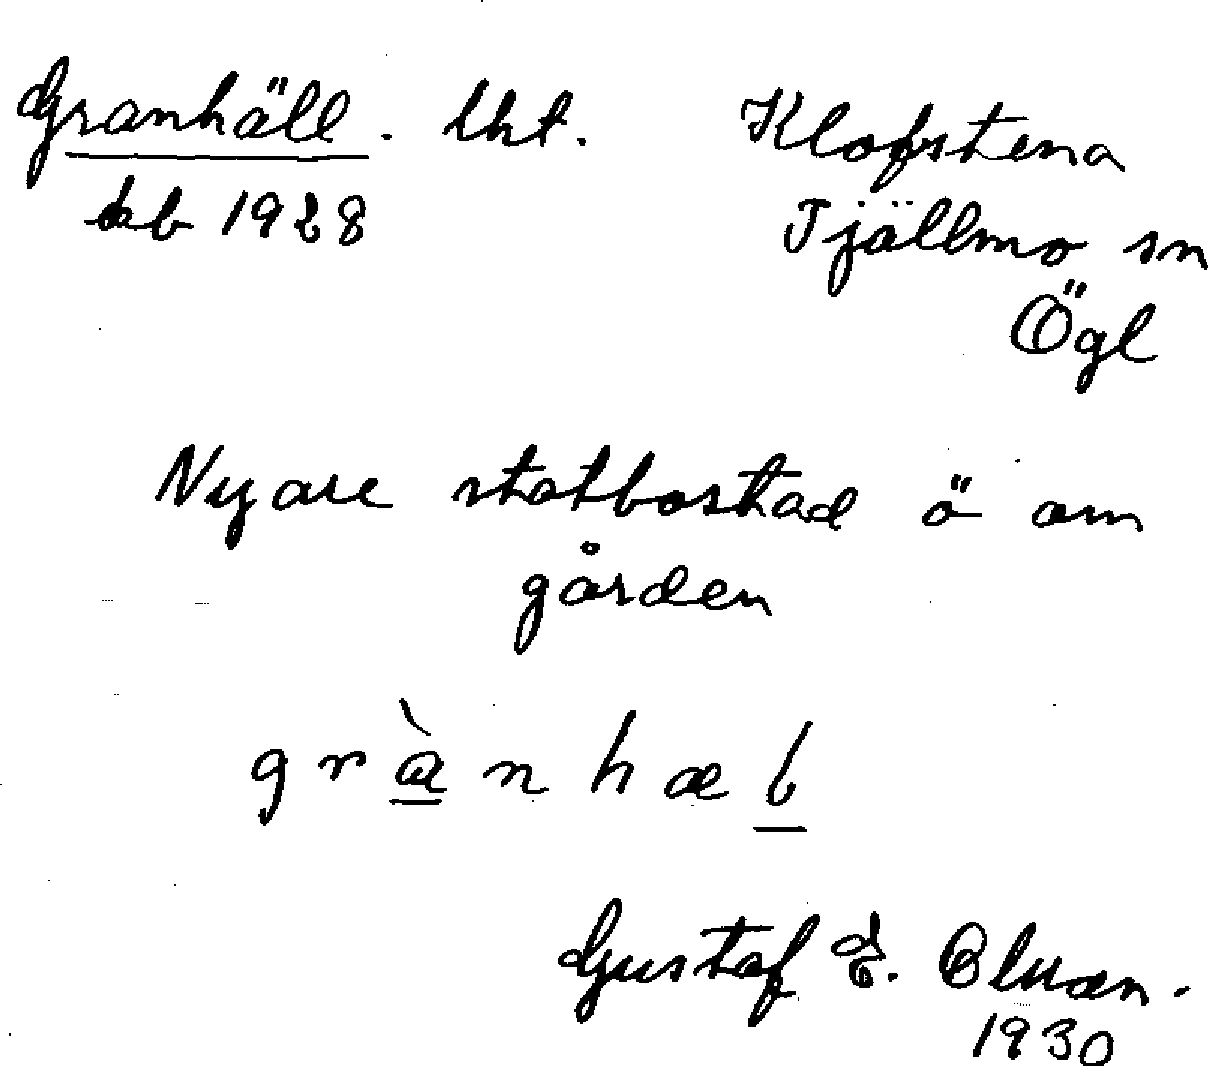 Granhäll. lht. Klofstena
kb 1928 Tjällmo sn
Ögl
Nyare statbostad ö om
gården
grànhæl
Gustaf E.
1930